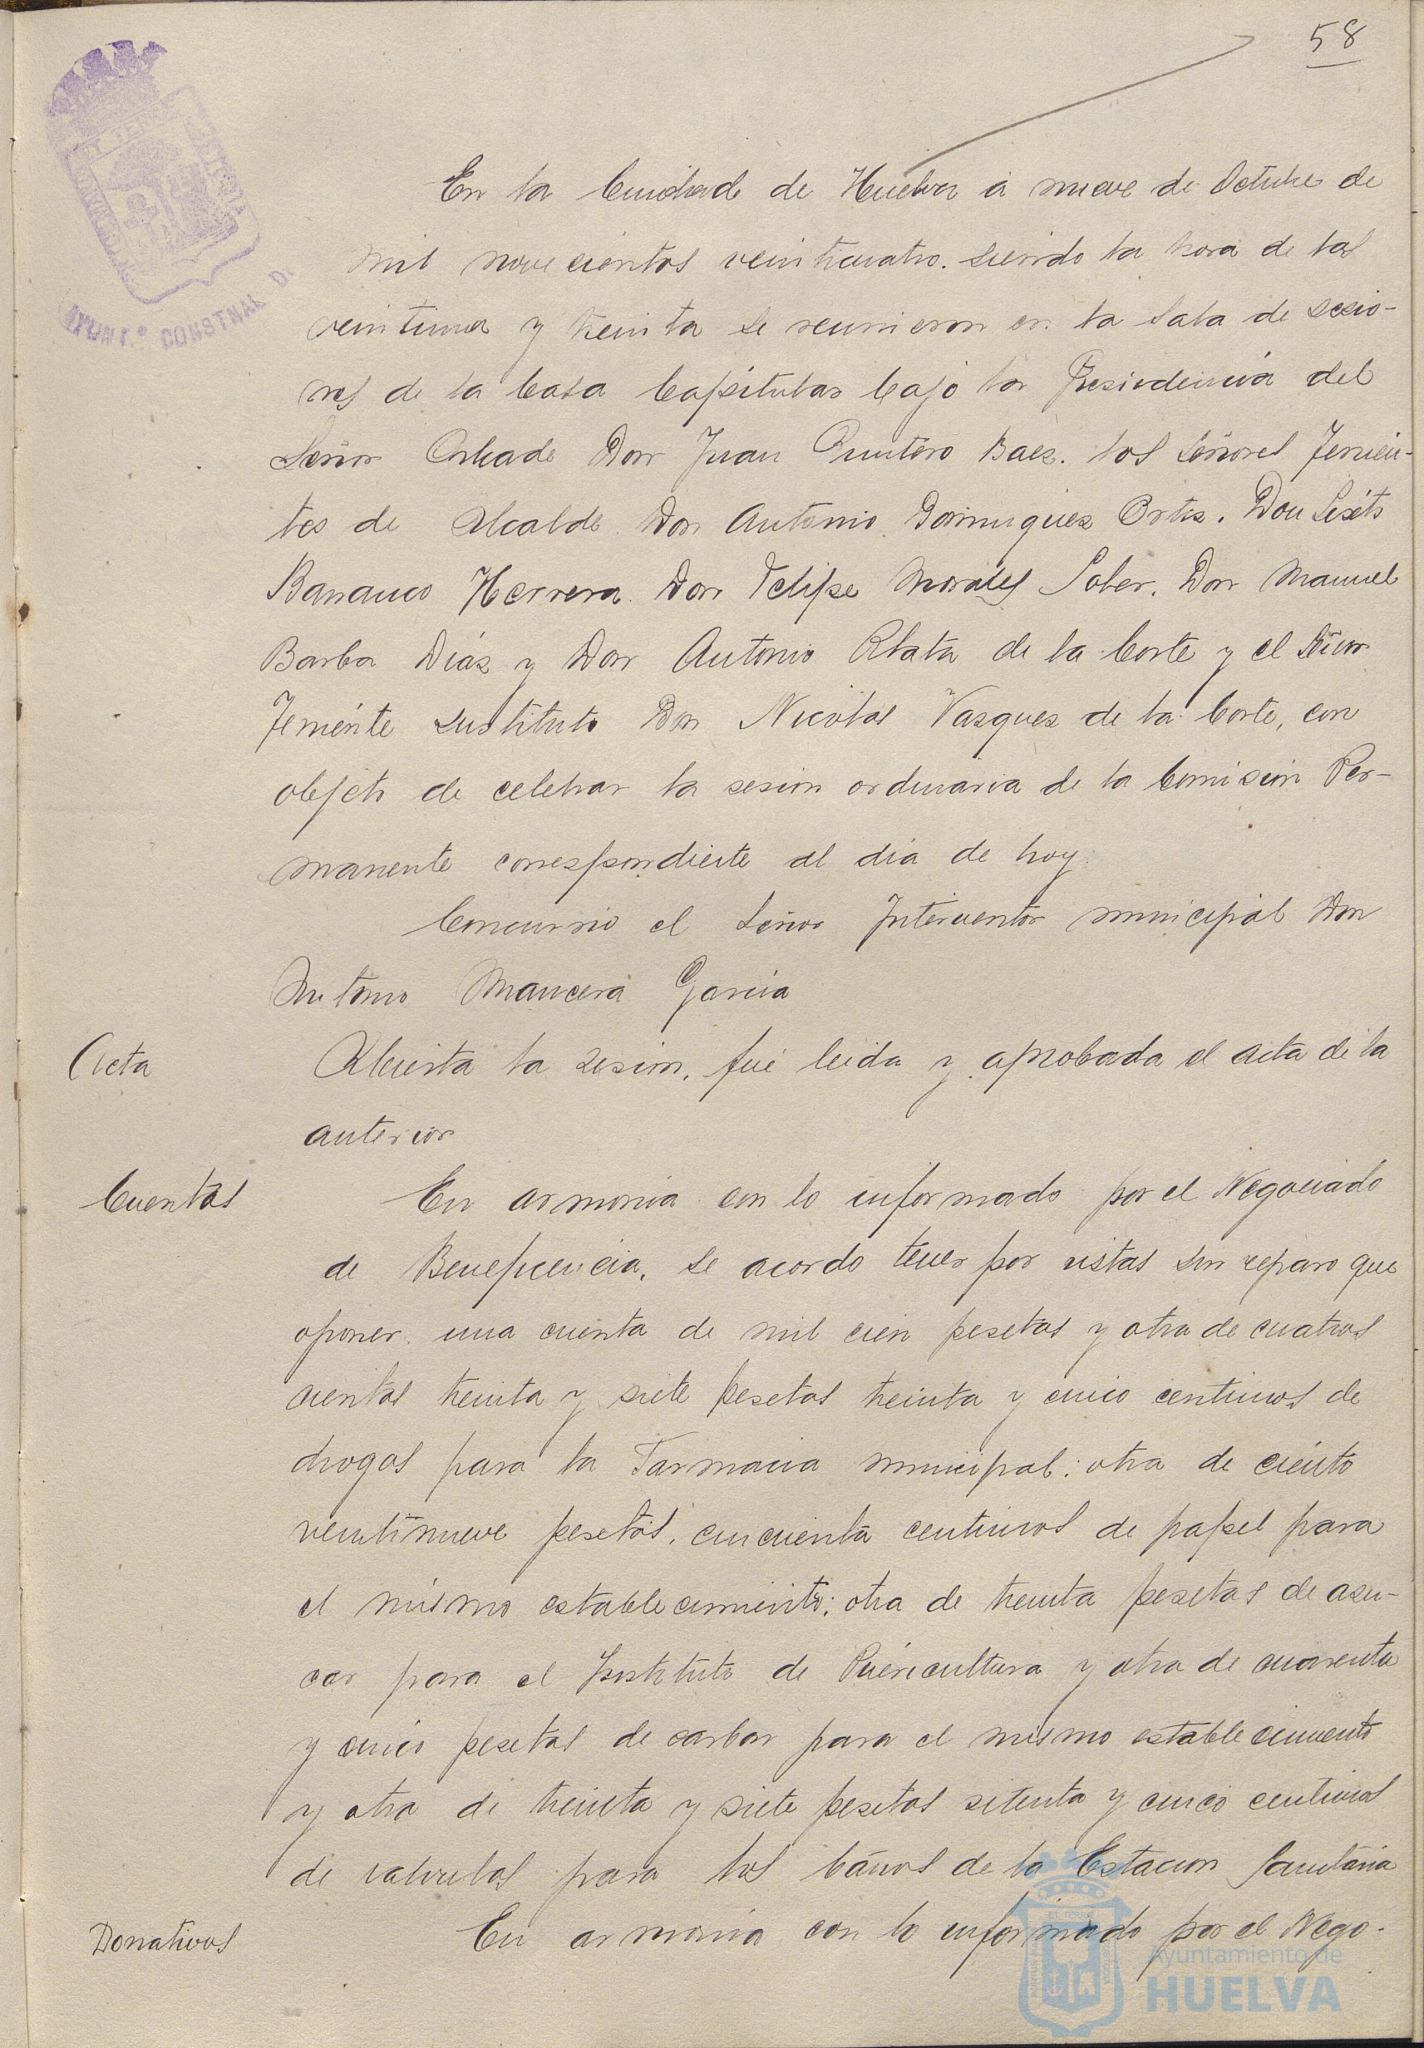 58
En la Ciudad de Huelva á nueve de Octubre de
mil novecientos veinticuatro. siendo la hora de las
veintiuna y treinta se reunieron en la Sala de sesio-
nes de la Casa Capitular bajo la Presidencia del
Señor Alcalde Don Juan Quintero Baez. los Señores Tenien-
tes de Alcalde Don Antonio Dominguez Ortiz. Don Sixto
Barranco Herrera Don Felipe Morales Soler. Don Manuel
Barba Díaz y Don Antonio Plata de la Corte y el Señor
Teniente sustituto Don Nicolas Vazquez de la Corte, con
objeto de celebrar la sesion ordinaria de la Comision Per-
manente correspondiente al dia de hoy
Concurrió el Señor Interventor municipal Don
Antonio Mancera Garcia
Acta
Abierta la sesion, fué leida y aprobada el acta de la
anterior
Cuentas
En armonia con lo informado por el Negociado
de Beneficencia, se acordo tener por vistas sin reparo que
oponer una cuenta de mil cien pesetas y otra de cuatros
cientas treinta y siete pesetas treinta y cinco centimos de
drogas para la Farmacia municipal; otra de ciento
veintinueve pesetas, cincuenta centimos de papel para
el mismo establecimiento; otra de treinta pesetas de azu-
car para el Instituto de Puericultura y otra de cuarenta
y cinco pesetas de carbon para el mismo establecimiento
y otra de treinta y siete pesetas setenta y cinco centimos
de valvulas para los baños de la Estacion Sanitaria
Donativos
En armonia con lo informado por el Nego-
AYUNT.º CONSTNAL D
Ayuntamiento de
HUELVA